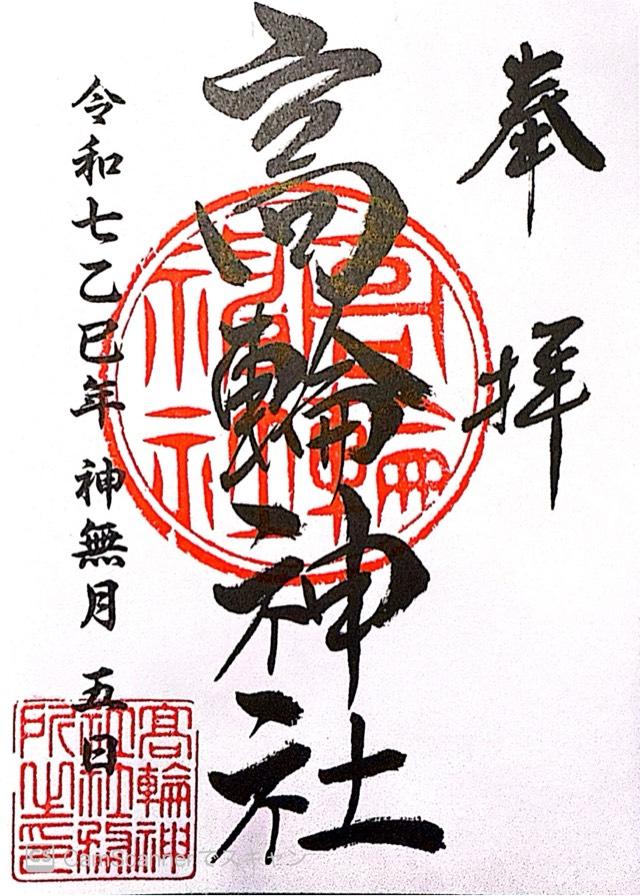 奉拝
高輪神社
令和七乙巳年 神無月 五日
高輪神
社社務
所之印
CS CamScannerでスキャン